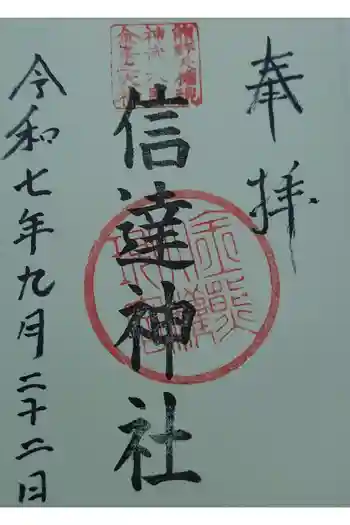 奉拝
信達神社
令和七年九月二十二日